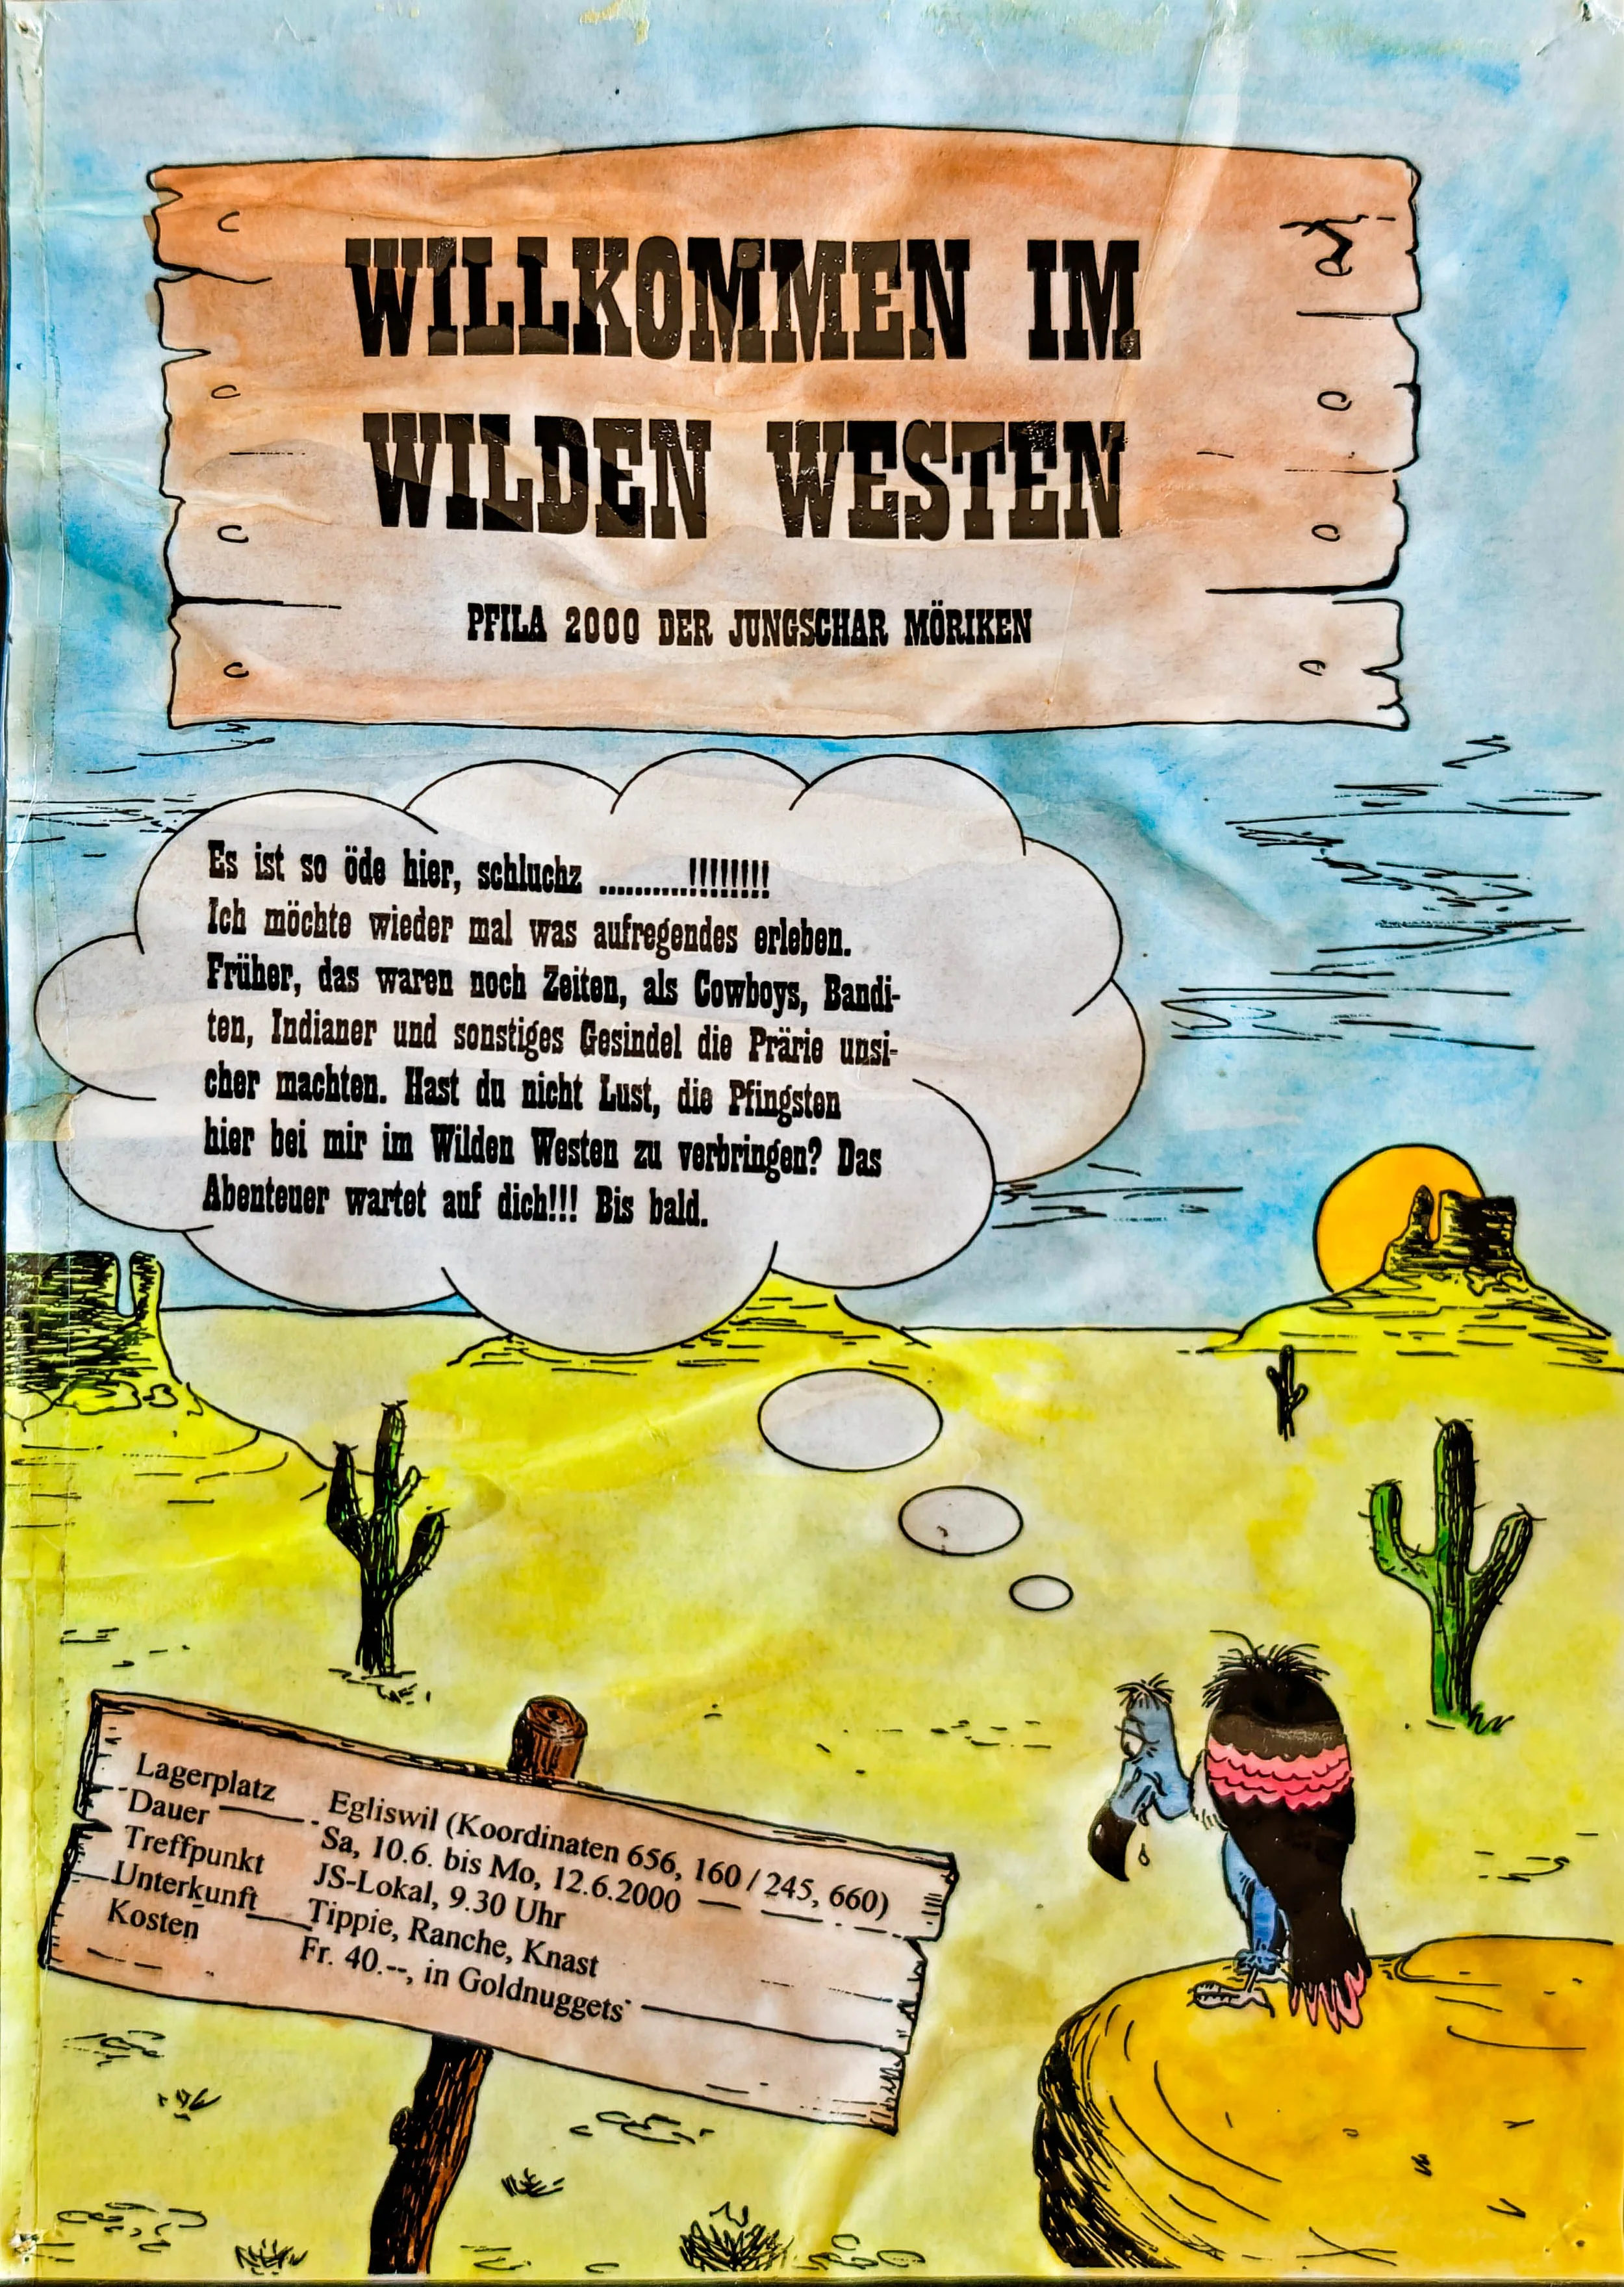 WILLKOMMEN IM
WILDEN WESTEN
PFILA 2000 DER JUNGSCHAR MÖRIKEN
Es ist so öde hier, schluchz ...........!!!!!!!!!
Ich möchte wieder mal was aufregendes erleben.
Früher, das waren noch Zeiten, als Cowboys, Bandi-
ten, Indianer und sonstiges Gesindel die Prärie unsi-
cher machten. Hast du nicht Lust, die Pfingsten
hier bei mir im Wilden Westen zu verbringen? Das
Abenteuer wartet auf dich!!! Bis bald.
Lagerplatz Egliswil (Koordinaten 656, 160 / 245, 660)
Dauer Sa, 10.6. bis Mo, 12.6.2000
Treffpunkt JS-Lokal, 9.30 Uhr
Unterkunft Tippie, Ranche, Knast
Kosten Fr. 40.--, in Goldnuggets